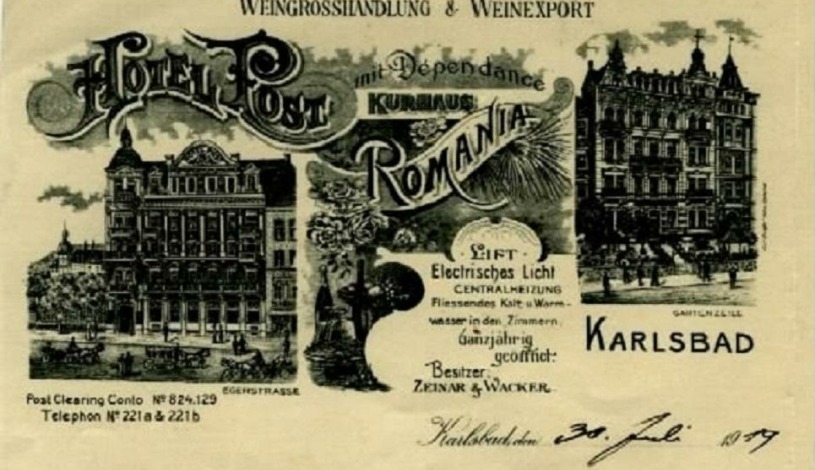 WEINGROSSHANDLUNG & WEINEXPORT
HOTEL POST
mit Dépendance
KURHAUS
ROMANIA
LIFT
Electrisches Licht
CENTRALHEIZUNG
Fliessendes Kalt u. Warm-
wasser in den Zimmern.
Ganzjährig
geöffnet.
Besitzer:
ZEINAR & WACKER.
GARTENZEILE
KARLSBAD
EGERSTRASSE
Post Clearing Conto Nº 824.129
Telephon Nº 221a & 221b
Karlsbad, den 30. Juli 19